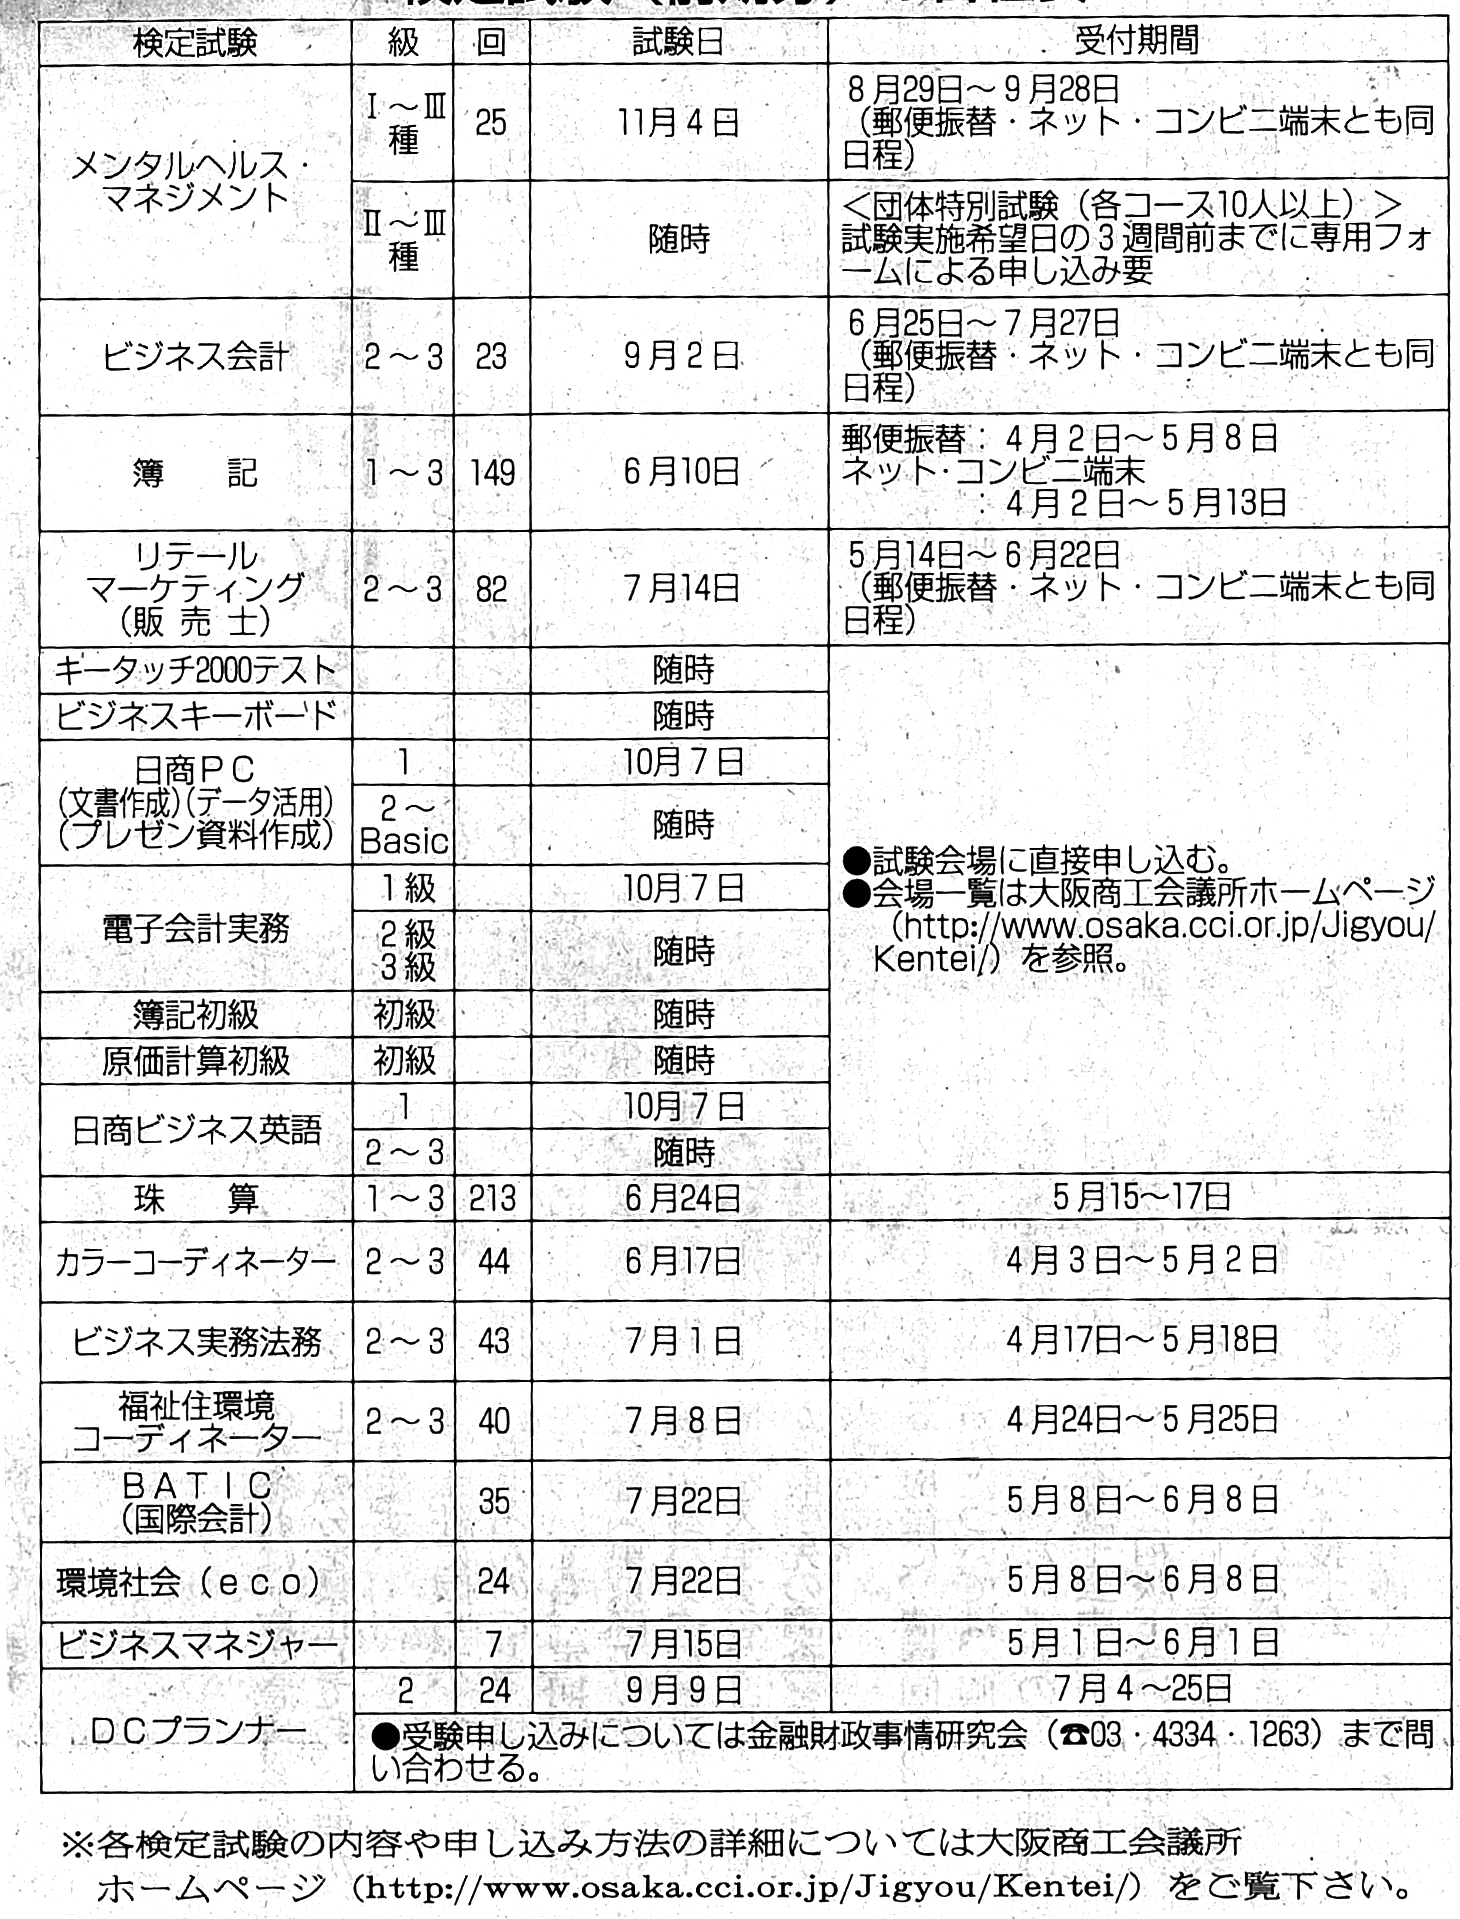 検定試験 級 回 試験日 受付期間
メンタルヘルス・
マネジメント
Ⅰ～Ⅲ
種
25
11月4日
8月29日～9月28日
（郵便振替・ネット・コンビニ端末とも同
日程）
Ⅱ～Ⅲ
種
随時
＜団体特別試験（各コース10人以上）＞
試験実施希望日の3週間前までに専用フォ
ームによる申し込み要
ビジネス会計 2～3 23 9月2日
6月25日～7月27日
（郵便振替・ネット・コンビニ端末とも同
日程）
簿　記 1～3 149 6月10日
郵便振替：4月2日～5月8日
ネット・コンビニ端末
：4月2日～5月13日
リテール
マーケティング
（販売士）
2～3 82 7月14日
5月14日～6月22日
（郵便振替・ネット・コンビニ端末とも同
日程）
キータッチ2000テスト 随時
ビジネスキーボード 随時
日商ＰＣ
（文書作成）（データ活用）
（プレゼン資料作成）
1 10月7日
2～
Basic
随時
電子会計実務
1級 10月7日
2級
3級
随時
簿記初級 初級 随時
原価計算初級 初級 随時
日商ビジネス英語
1 10月7日
2～3 随時
●試験会場に直接申し込む。
●会場一覧は大阪商工会議所ホームページ
（http://www.osaka.cci.or.jp/Jigyou/
Kentei/）を参照。
珠　算 1～3 213 6月24日 5月15～17日
カラーコーディネーター 2～3 44 6月17日 4月3日～5月2日
ビジネス実務法務 2～3 43 7月1日 4月17日～5月18日
福祉住環境
コーディネーター
2～3 40 7月8日 4月24日～5月25日
ＢＡＴＩＣ
（国際会計）
35 7月22日 5月8日～6月8日
環境社会（ｅｃｏ） 24 7月22日 5月8日～6月8日
ビジネスマネジャー 7 7月15日 5月1日～6月1日
ＤＣプランナー
2 24 9月9日 7月4～25日
●受験申し込みについては金融財政事情研究会（☎03・4334・1263）まで問
い合わせる。
※各検定試験の内容や申し込み方法の詳細については大阪商工会議所
ホームページ（http://www.osaka.cci.or.jp/Jigyou/Kentei/）をご覧下さい。